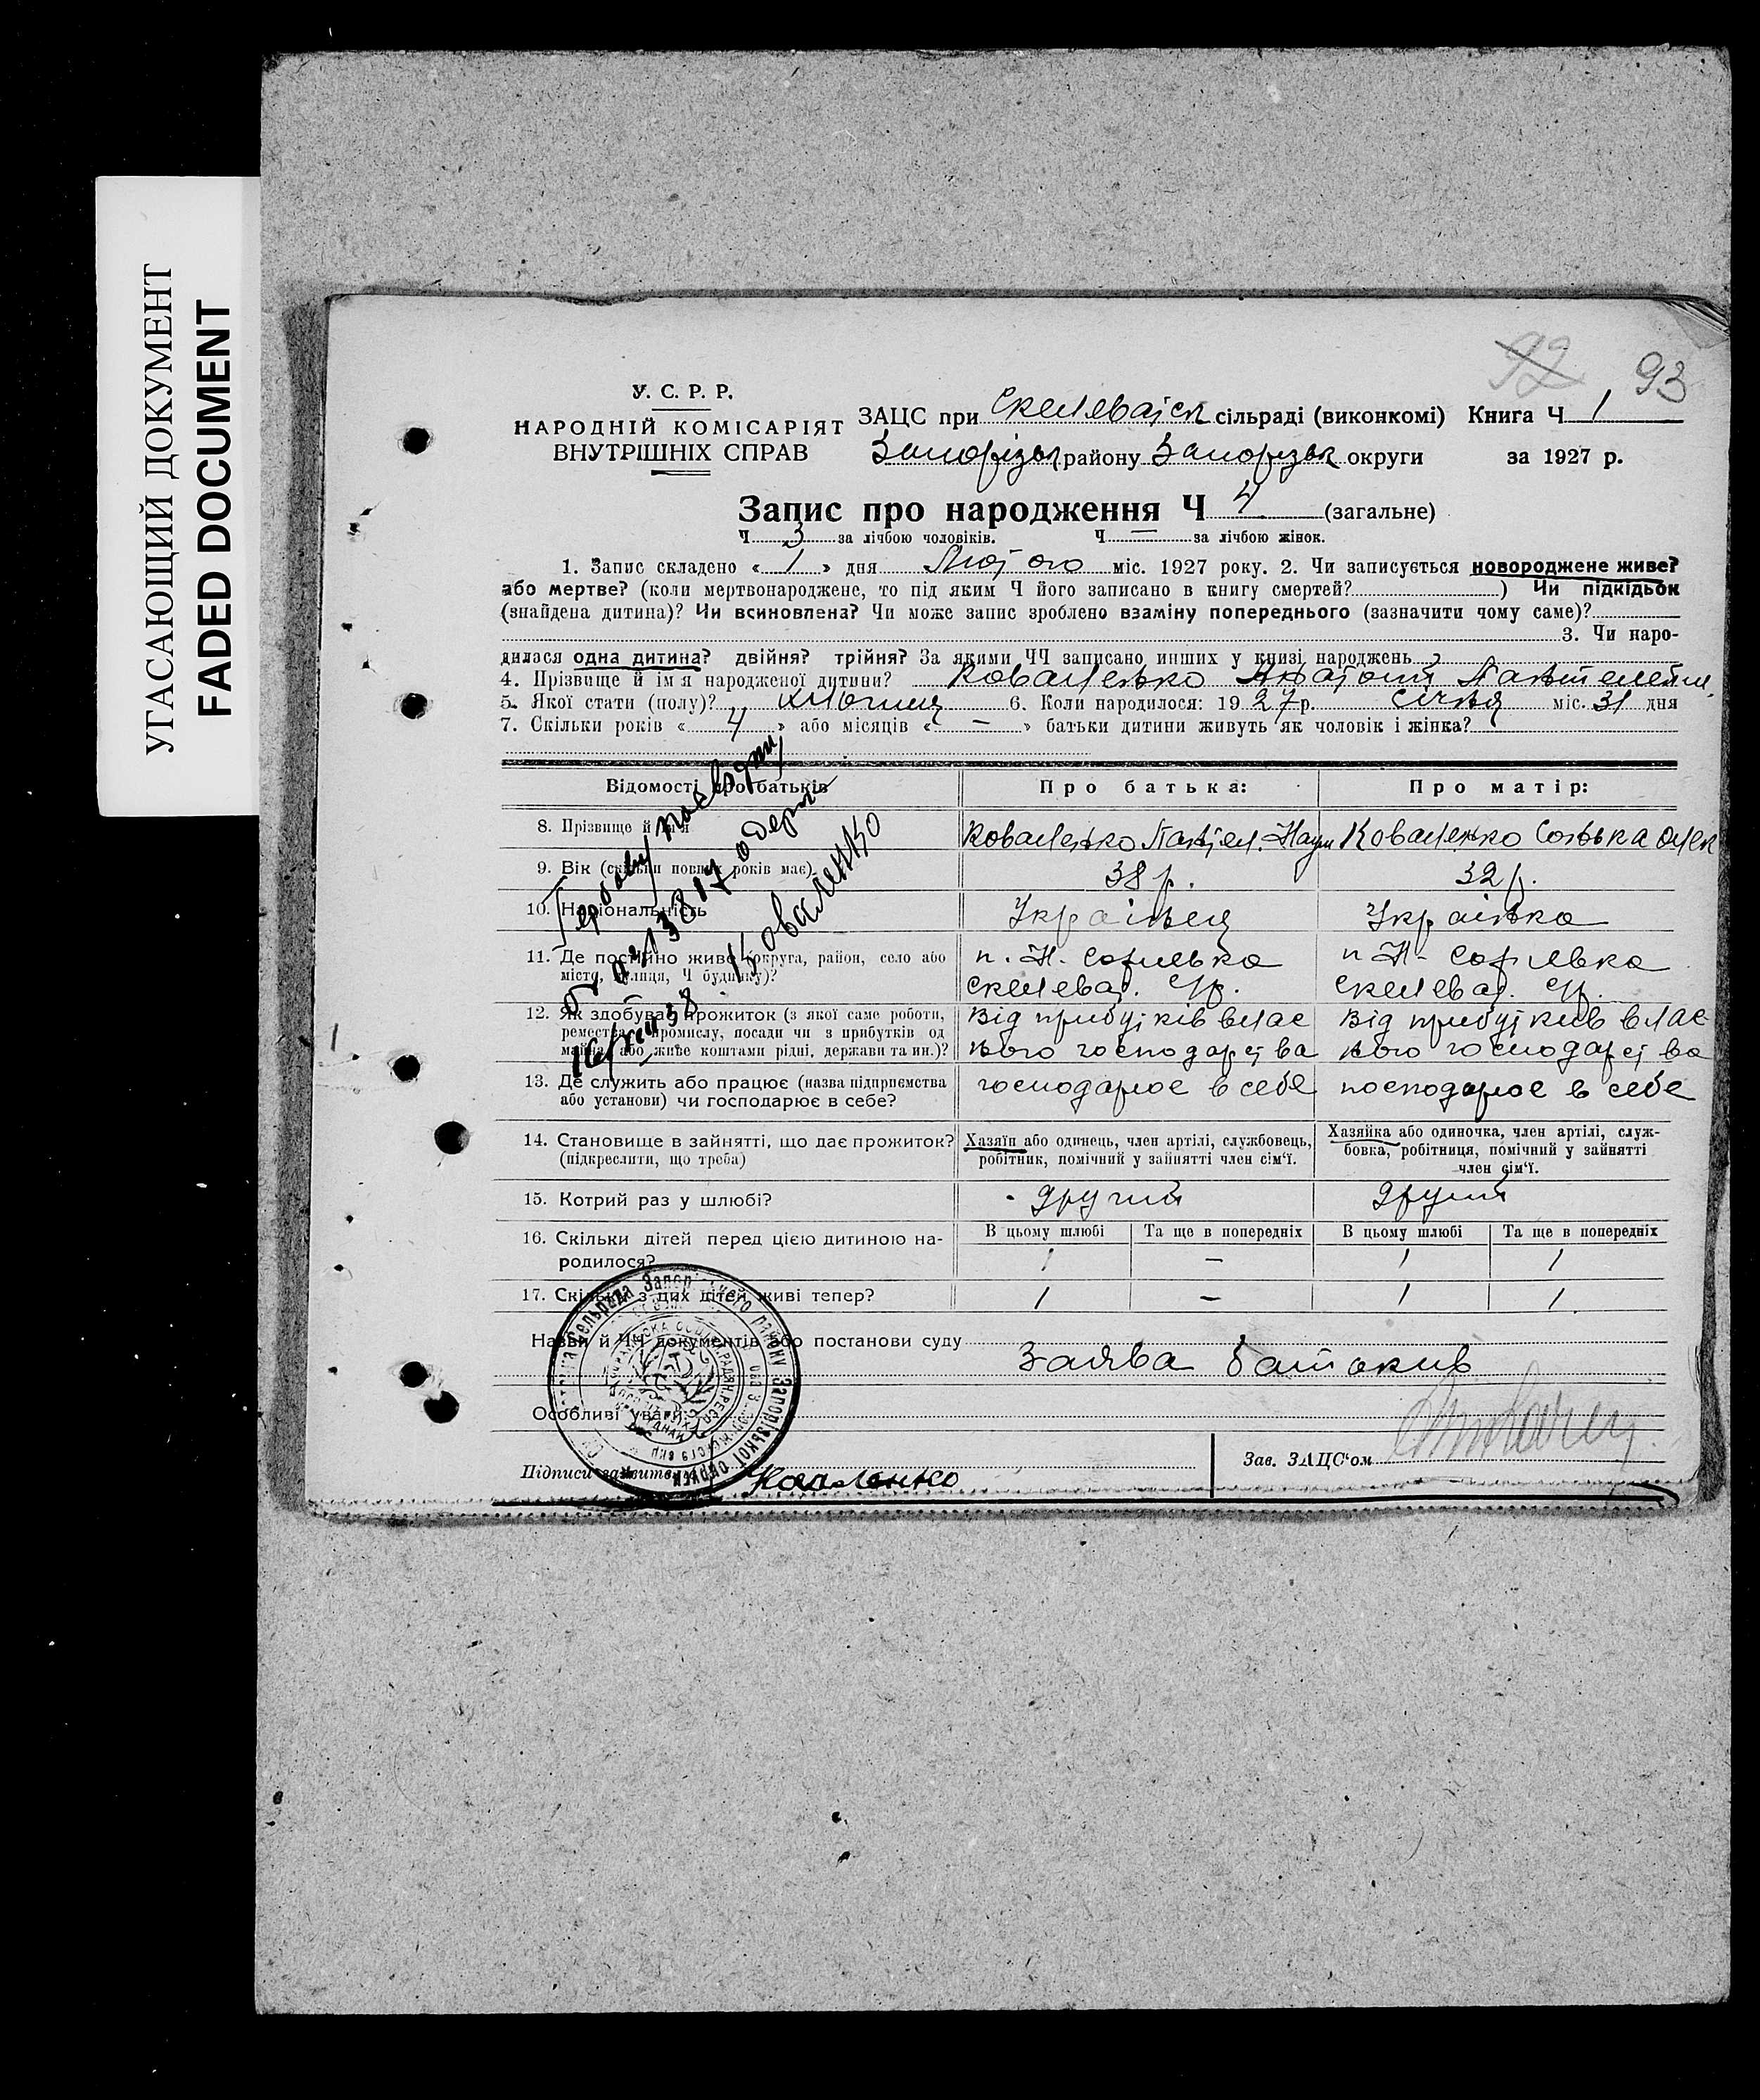 УГАСАЮЩИЙ ДОКУМЕНТ
FADED DOCUMENT
92 93
У. С. Р. Р.
НАРОДНІЙ КОМІСАРІЯТ
ВНУТРІШНІХ СПРАВ
ЗАЦС при Скелеватск сільраді (виконкомі) Книга Ч 1
Запорізьк району Запорізьк округи за 1927 р.
Запис про народження Ч 4 (загальне)
Ч 3 за лічбою чоловіків. Ч — за лічбою жінок.
1. Запис складено « 1 » дня Лютого міс. 1927 року. 2. Чи записується новороджене живе?
або мертве? (коли мертвонароджене, то під яким Ч його записано в книгу смертей? ) Чи підкідьок
(знайдена дитина)? Чи всиновлена? Чи може запис зроблено взаміну попереднього (зазначити чому саме)?
3. Чи наро-
дилася одна дитина? двійня? трійня? За якими ЧЧ записано инших у книзі народжень ?
4. Прізвище й ім'я народженої дитини? Коваленко Анатолій Пантелейм.
5. Якої стати (полу)? хлопець 6. Коли народилося: 1927 р. січня міс. 31 дня
7. Скільки років « 4 » або місяців « — » батьки дитини живуть як чоловік і жінка?
Відомості про батьків
Про батька: Про матір:
8. Прізвище й ім'я Коваленко Пантел. Наум Коваленко Сонька Олек
9. Вік (скільки повних років має) 38 р. 32 р.
10. Національність Українец Українка
11. Де постійно живе (округа, район, село або
місто, вулиця, Ч будинку)?
п. Н. Софиевка п. Н. Софиевка
Скелеват. с/р. Скелеват. с/р.
12. Як здобуває прожиток (з якої саме роботи,
ремества, промислу, посади чи з прибутків од
майна, або живе коштами рідні, держави та ин.)?
Від прибутків влас Від прибутков влас
ного господарства ного господарства
13. Де служить або працює (назва підприємства
або установи) чи господарює в себе?
господарює в себе господарює в себе
14. Становище в зайнятті, що дає прожиток?
(підкреслити, що треба)
Хазяїн або одинець, член артілі, службовець,
робітник, помічний у зайнятті член сім'ї.
Хазяйка або одиночка, член артілі, служ-
бовка, робітниця, помічний у зайнятті
член сім'ї.
15. Котрий раз у шлюбі? другий другий
16. Скільки дітей перед цією дитиною на-
родилося?
В цьому шлюбі Та ще в попередніх В цьому шлюбі Та ще в попередніх
1 — 1 1
17. Скільки з цих дітей живі тепер? 1 — 1 1
Назви й ЧЧ документів або постанови суду
Заява батьков
Особливі уваги:
Підписи заявителів Коваленко
Зав. ЗАЦС'ом
Коваленко